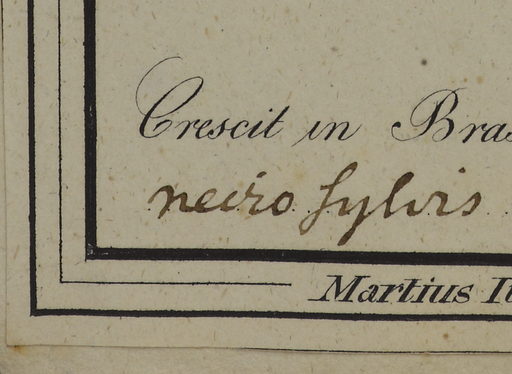 Crescit in Bras
negro sylvis
Martius It